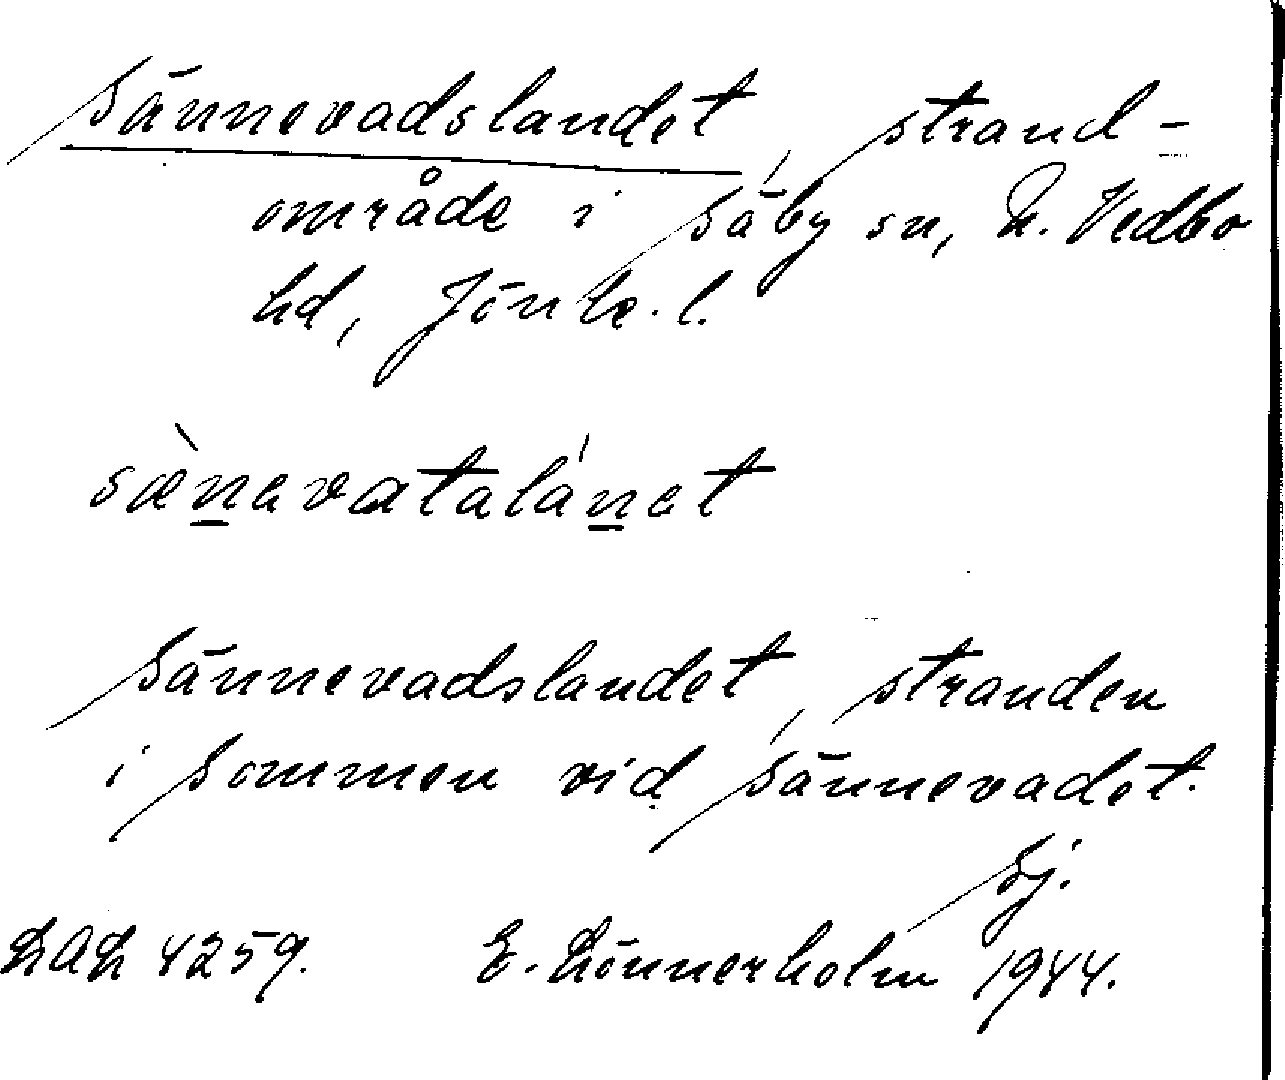 Sännevadslandet, strand-
område i Säby sn, N. Vedbo
hd, Jönk. l.
sæ̀n̲avatalán̲et
Sännevadslandet, stranden
i Sommen vid Sännevadet.
Sj.
LAL 4259. E. Lönnerholm 1944.